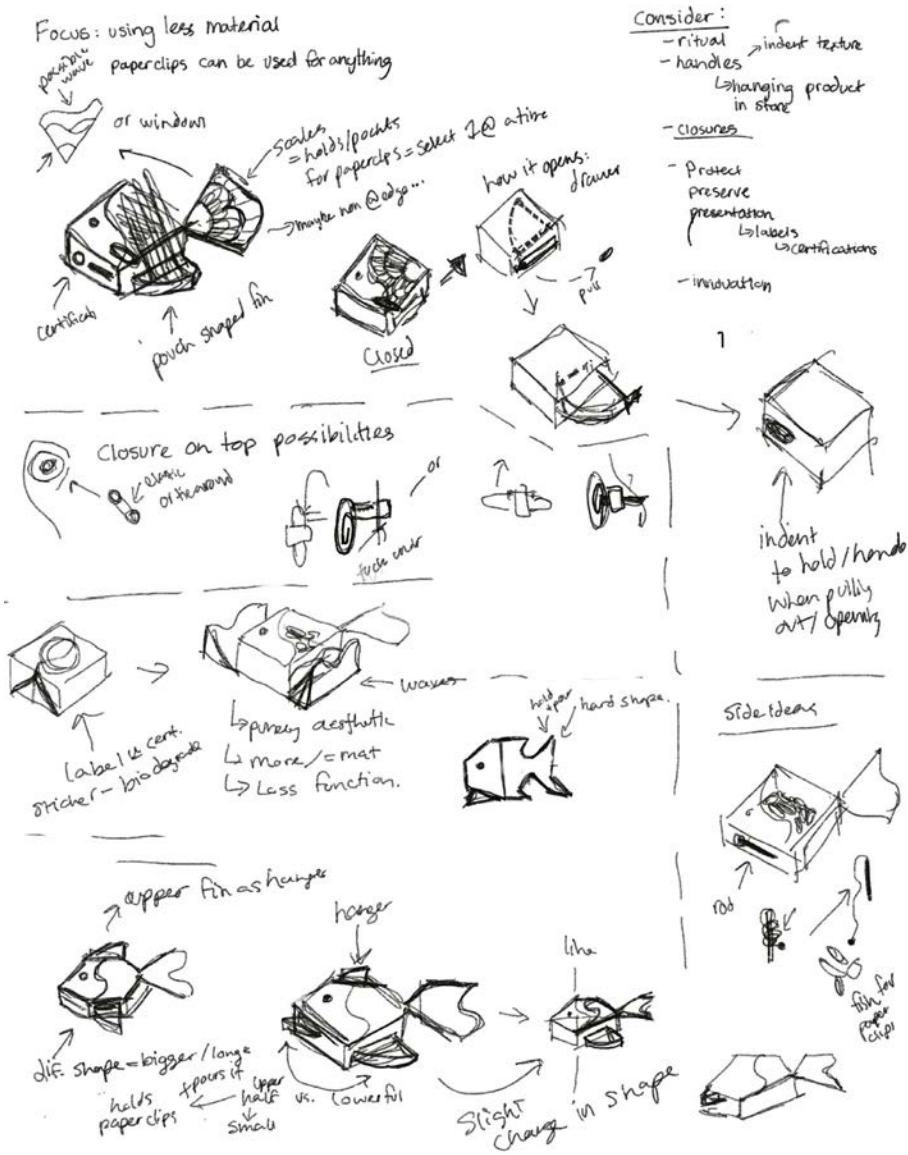 Focus: using less material
possible
wave
paperclips can be used for anything
or window
scales
= holds/pockets
for paperclips = select 1 @ a time
maybe non @ edge...
certificat
pouch shaped fin
Closed
how it opens:
drawer
pull
Consider:
- ritual
- handles
indent texture
hanging product
in store
- closures
- Protect
preserve
presentation
labels
certifications
- innovation
1
Closure on top possibilties
elastic
or
tuck under
indent
to hold/
when pulling
out/opening
Label & cert.
sticker - biodegrade
waves
purely aesthetic
more/= mat
Less function.
hold
+ pour
hard shape.
Side ideas
rod
fish for
paper
clips
upper fin as hanger
dif. shape = bigger/longe
holds
paperclips
+ pours it
upper
half
small
vs. lowerful
hanger
like
Slight
change in shape